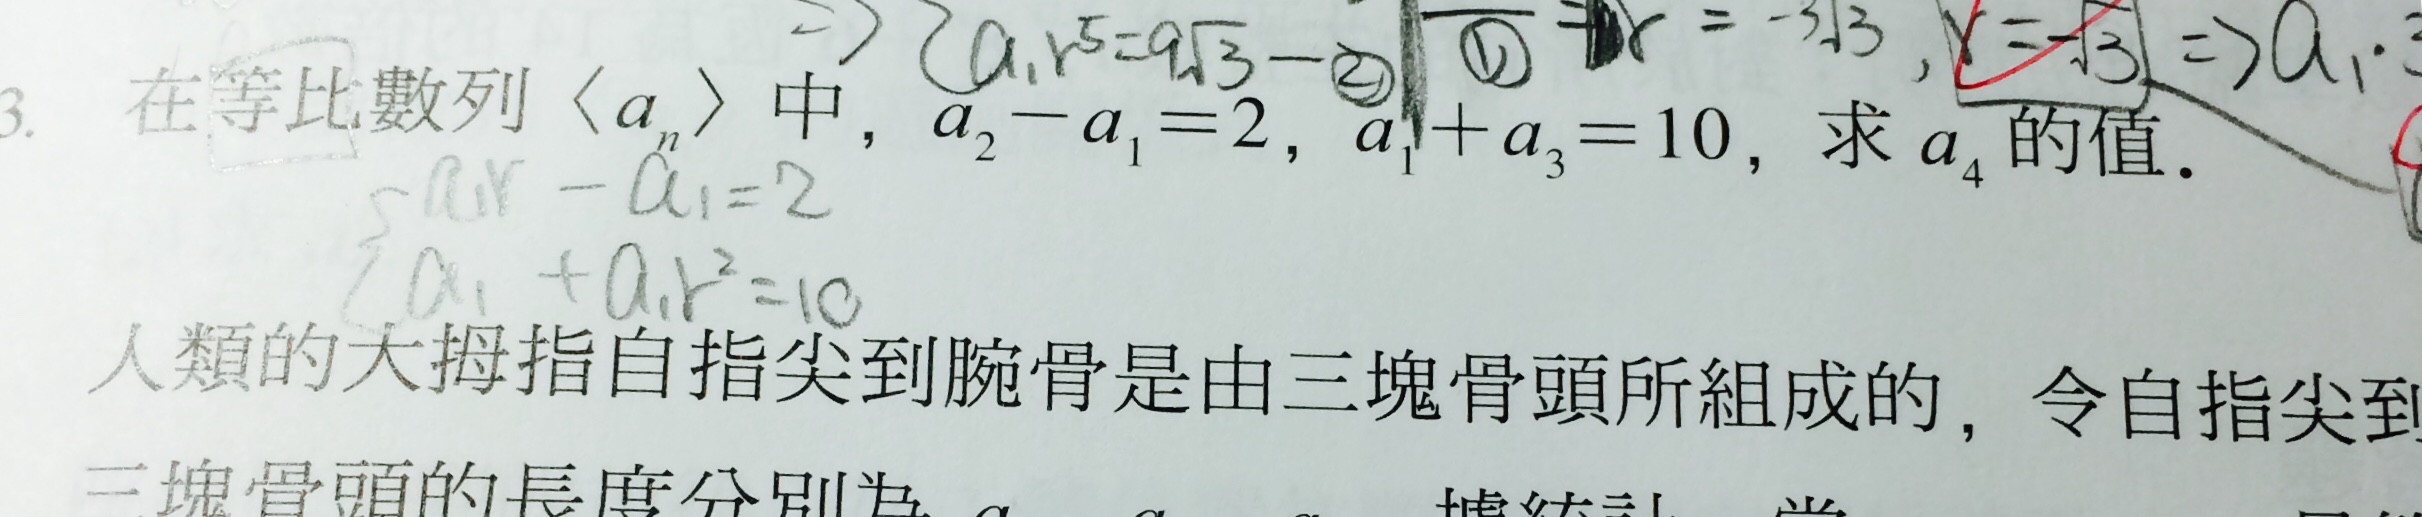 => { a₁r⁵=9√3-② ① => r = -3√3 , r=-√3 => a₁·3
3. 在等比數列〈aₙ〉中，a₂－a₁＝2，a₁＋a₃＝10，求 a₄ 的值．
{ a₁r - a₁=2
a₁ + a₁r²=10
人類的大拇指自指尖到腕骨是由三塊骨頭所組成的，令自指尖到
三塊骨頭的長度分別為